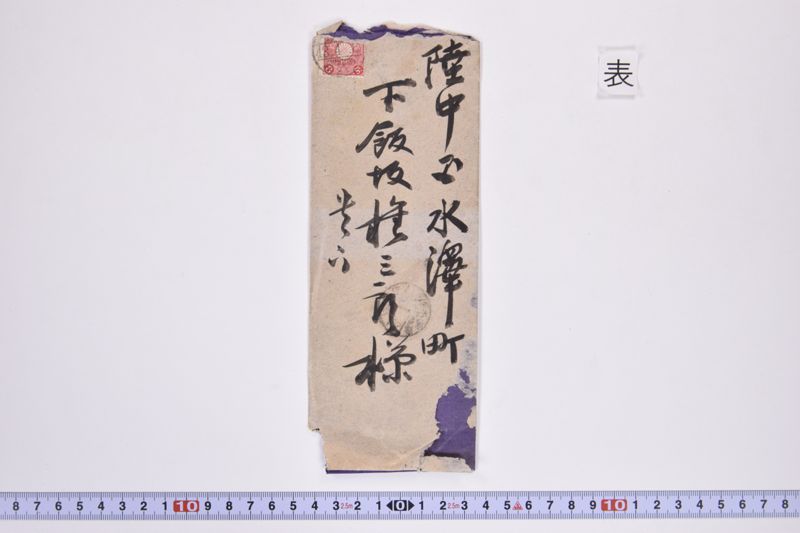 陸中国水澤町
下飯坂権三郎様
貴下
表
8 7 6 5 4 3 2 1 10 9 8 7 6 5 4 3 2.5m 2 1 0 1 2 2.5m 3 4 5 6 7 8 9 10 1 2 3 4 5 6 7 8